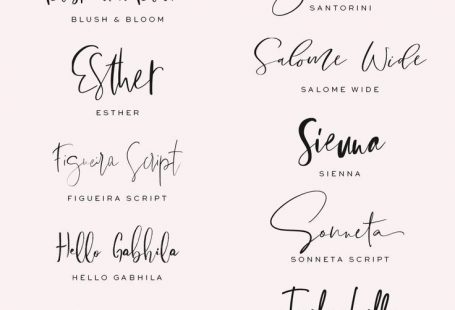 BLUSH & BLOOM
Esther
ESTHER
Figueira Script
FIGUEIRA SCRIPT
Hello Gabhila
HELLO GABHILA
SANTORINI
Salome Wide
SALOME WIDE
Sienna
SIENNA
Sonneta
SONNETA SCRIPT